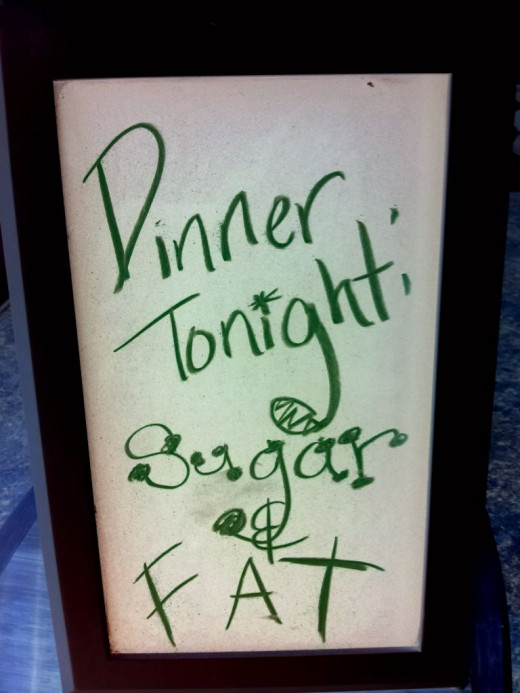 Dinner
Tonight:
Sugar
&
FAT